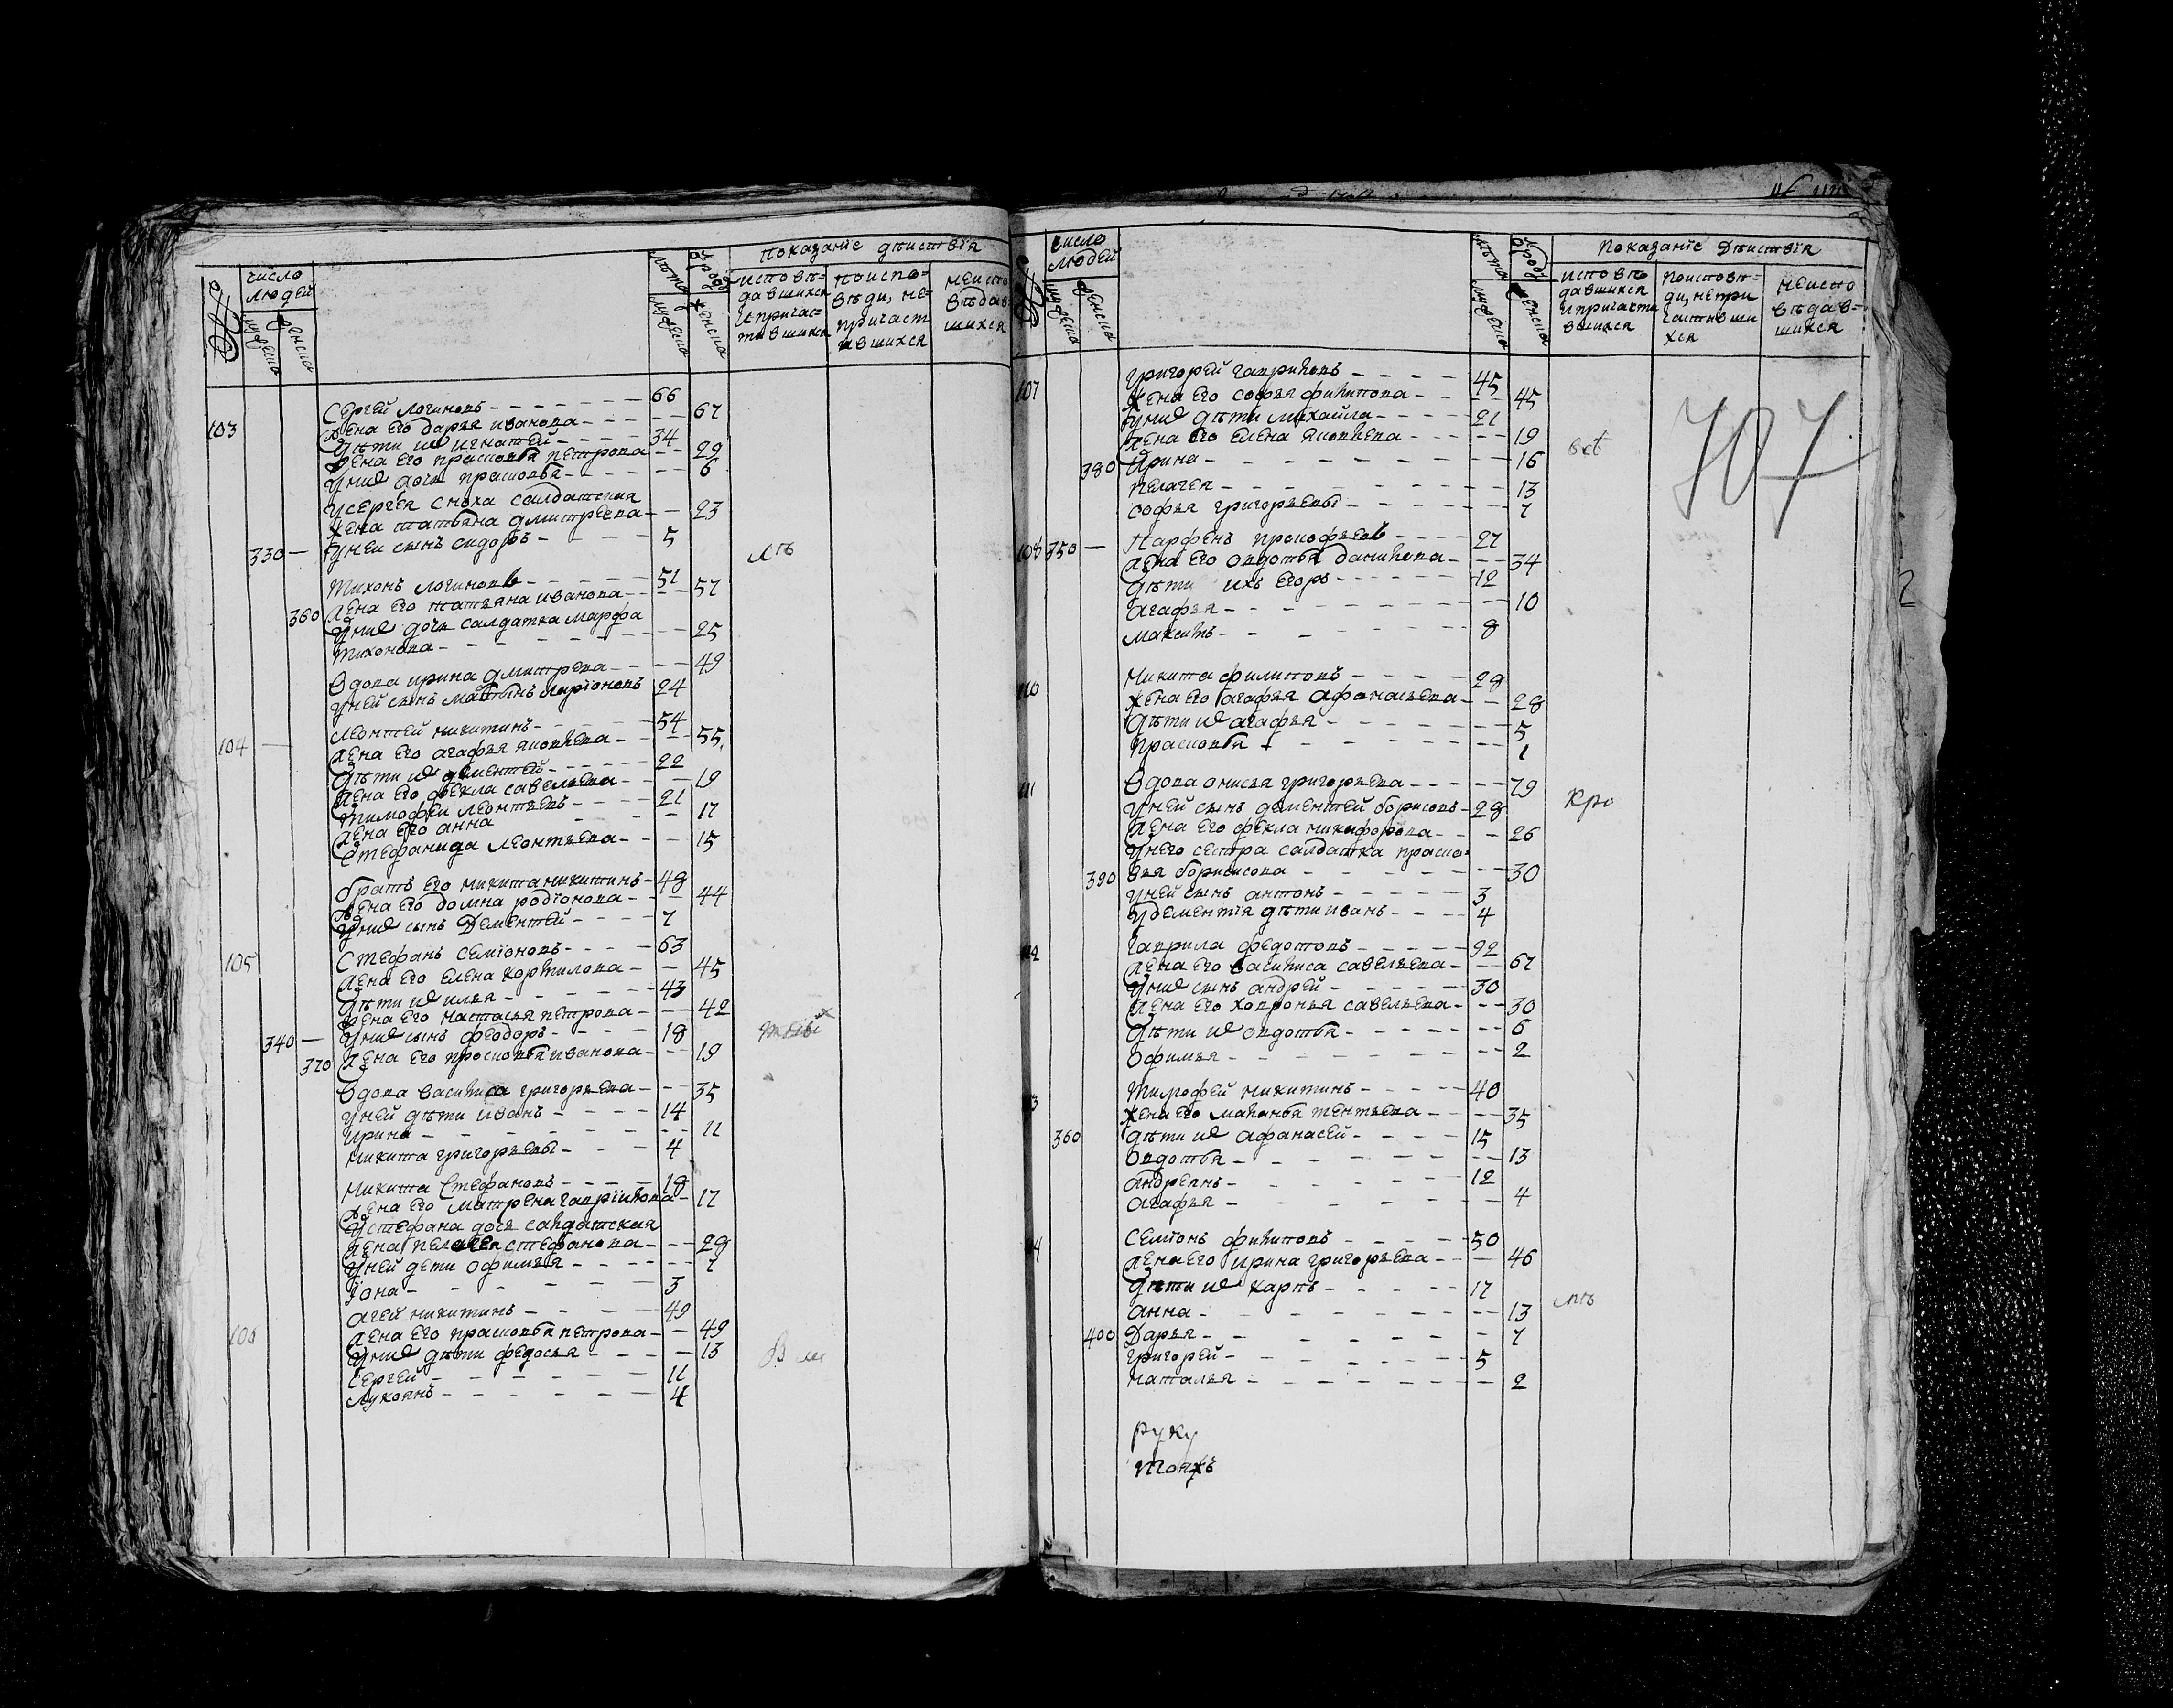 число людей
мужеска
женска
лѣта
мужеска
женска
показанїе дѣиствїя
исповѣ=
давшихся
и причас=
тившихся
по испо=
вѣди, не=
причаст
ившихся
неиспо
вѣдав
шихся
103
Сергей логиновъ - - - - 66
жена его дарья иванова - - - 67
дѣти их игнатей - - - - 34
жена его прасковья петрова - - 29
у них дочь прасковья - - - - 6
у сергея сноха салдатская
жена татьяна дмитреева - - 23
330 — у неи сынъ сидоръ - - - 5
Тихонъ логиновъ - - - - 51
360 жена его татьяна иванова - - - 57
у них дочь салдатка марфа
тихонова - - - 25
вдова ирина дмитрева - - - 49
у ней сынъ ларионовъ 24
104
леонтей никитинъ - - - 54
жена его агафья - - - 55
дѣти их дементей - - - 22
жена его фекла савельева - - - 19
тимофей леонтьевъ - - - 21
жена его анна - - - 17
Стефанида леонтьева - - - 15
братъ его никита никитинъ - 48
жена его домна родїонова - - 44
у них сынъ Дементей - - - 7
105
Стефанъ семїоновъ - - - 63
жена его елена корнилова - - 45
дѣти их илья - - - - 43
жена его настасья петрова - - 42
340 — у них сынъ феодоръ - - - 18
370 жена его прасковья иванова - - 19
вдова василиса григорьева - - 35
у ней дѣти иванъ - - - 14
ирина - - - - 11
никита григорьевы - - - 4
никита Стефановъ - - - 18
жена его матрена гаврилова - 17
у стефана дочь салдатская
жена пелагея стефанова - - - 29
у ней дети офимья - - - - 7
Їона - - - - 3
агей никитинъ - - - 49
106
жена его прасковья петрова - - 49
у них дѣти федосья - - - 13
Сергей - - - - 11
лукоянъ - - - - 4
число
людей
мужеска
женска
лѣта
мужеска
женска
Показанїе Дѣиствїя
исповѣ
давшихся
и причасти
вшихся
По исповѣ=
ди, непри
частивши
хся
неиспо
вѣдав=
шихся
107
григорей гавриловъ - - - - 45
жена его софья филипова - - 45
у них дѣти михайла - - - 21
жена его елена яковлева - - - 19
380 Ирина - - - - 16
пелагея - - - - 13
софья григорьевы - - - - 7
707
350 — Парфенъ прокофьевъ - - - 27
жена его овдотья данилова - - 34
дѣти ихъ егоръ - - - - 12
агафья - - - - 10
максимъ - - - - 8
110
Никита филиповъ - - - - 28
жена его агафья афонасьева - - 28
дѣти их агафья - - - - 5
прасковья - - - - 1
вдова анисья григорьева - - - 79
у ней сынъ дементей борисовъ - 28
жена его фекла никифорова - - 26
у него сестра салдатка праско=
390 вья борисова - - - - 30
у ней сынъ антонъ - - - - 3
у дементїя дѣти иванъ - - - 4
гаврила федотовъ - - - - 92
жена его василиса савельева - - 67
у них сынъ андрей - - - - 30
жена его хавронья савельева - - 30
дѣти их овдотья - - - - 6
офимья - - - - 2
Тимофей никитинъ - - - - 40
жена его маланья - - - 35
360 дѣти их афанасей - - - - 15
овдотья - - - - 13
андреянъ - - - - 12
агафья - - - - 4
Семїонъ филиповъ - - - - 50
жена его ирина григорьева - - - 46
дѣти их карпъ - - - - 17
анна - - - - 13
400 Дарья - - - - 7
григорей - - - - 5
наталья - - - - 2
руку